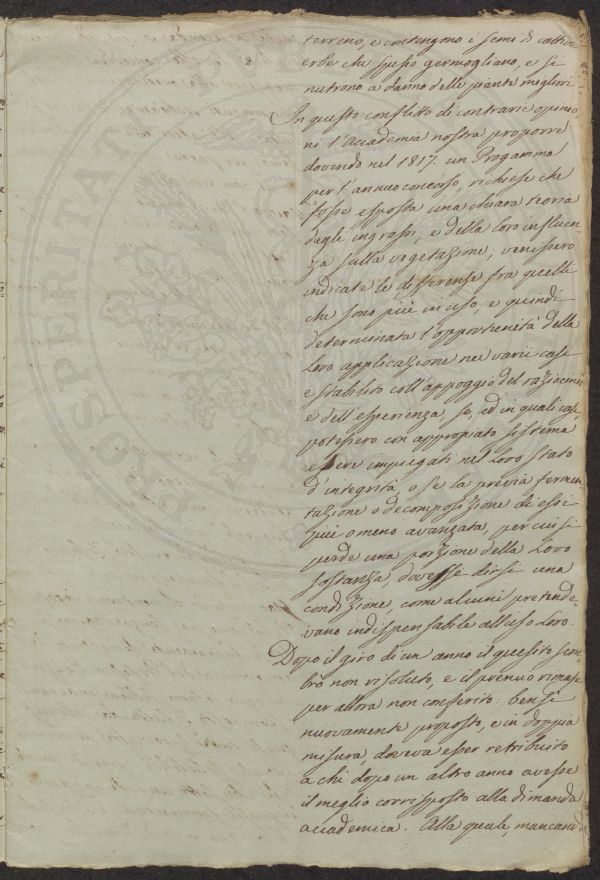 terreno, e contengono i semi di cattive
erbe che spesso germogliano, e si
nutrono a danno delle piante migliori
In questo conflitto di contrarie opinio-
ni l'Accademia nostra proporre
dovendo nel 1817. un Progamma
per l'annuo concorso, richiese che
fosse esposta una chiara teoria
degli ingrassi, e della loro influen-
za sulla vegetazione, venissero
indicate le differenze fra quelli
che sono più in uso, e quindi
determinata l'opportunità della
loro applicazione nei varii casi
e stabilito coll'appoggio del raziocinio
e dell'esperienza, se, ed in quali casi
potessero con appropiato sistema
essere impiegati nel loro stato
d'integrità, o se la previa fermen-
tazione o decomposizione di essi
più o meno avanzata, per cui si
perde una porzione della loro
sostanza, dovesse dirsi una
condizione, come alcuni pretende-
vano indispensabile all'uso loro.
Dopo il giro di un anno il quesito sem-
brò non risoluto, e il premio rimase
per allora non conferito: bensì
nuovamente proposto, e in doppia
misura, doveva esser retribuito
a chi dopo un altro anno avesse
il meglio corrisposto alla dimanda
accademica. Alla quale, mancando